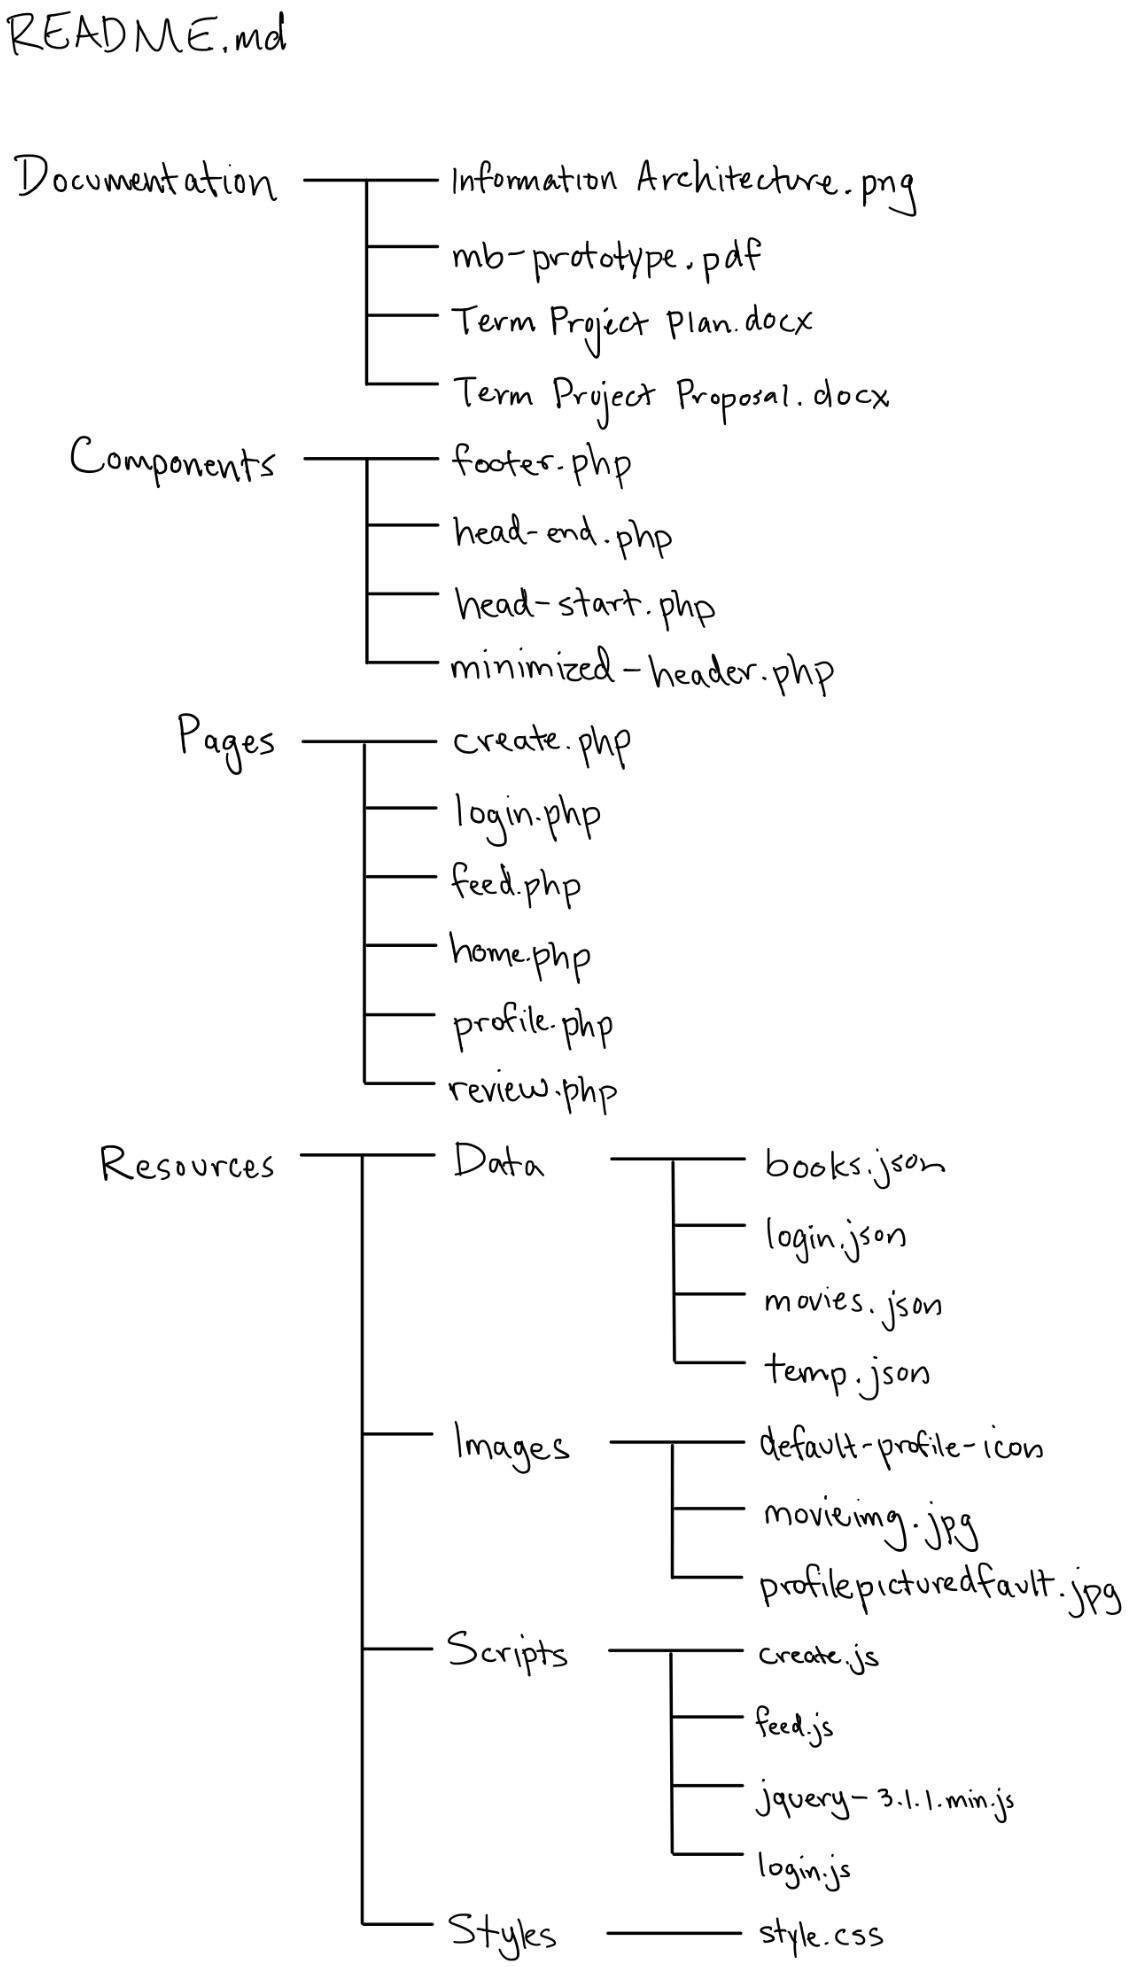 README.md
Documentation
Information Architecture.png
mb-prototype.pdf
Term Project Plan.docx
Term Project Proposal.docx
Components
footer.php
head-end.php
head-start.php
minimized-header.php
Pages
create.php
login.php
feed.php
home.php
profile.php
review.php
Resources
Data
books.json
login.json
movies.json
temp.json
Images
default-profile-icon
movieimg.jpg
profilepicturedfault.jpg
Scripts
create.js
feed.js
jquery-3.1.1.min.js
login.js
Styles
style.css